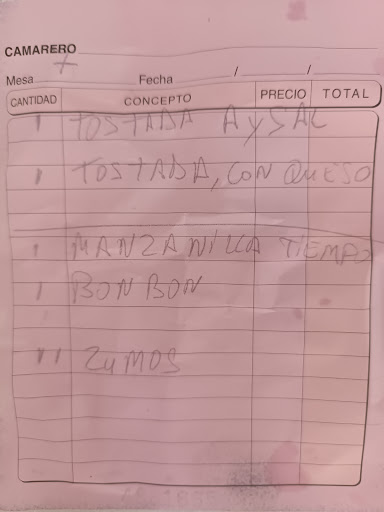 CAMARERO
Mesa + Fecha / /
CANTIDAD CONCEPTO PRECIO TOTAL
1 TOSTADA A y SAL
1 TOSTADA, CON QUESO
1 MANZANILLA TIEMPO
1 BONBON
11 ZUMOS